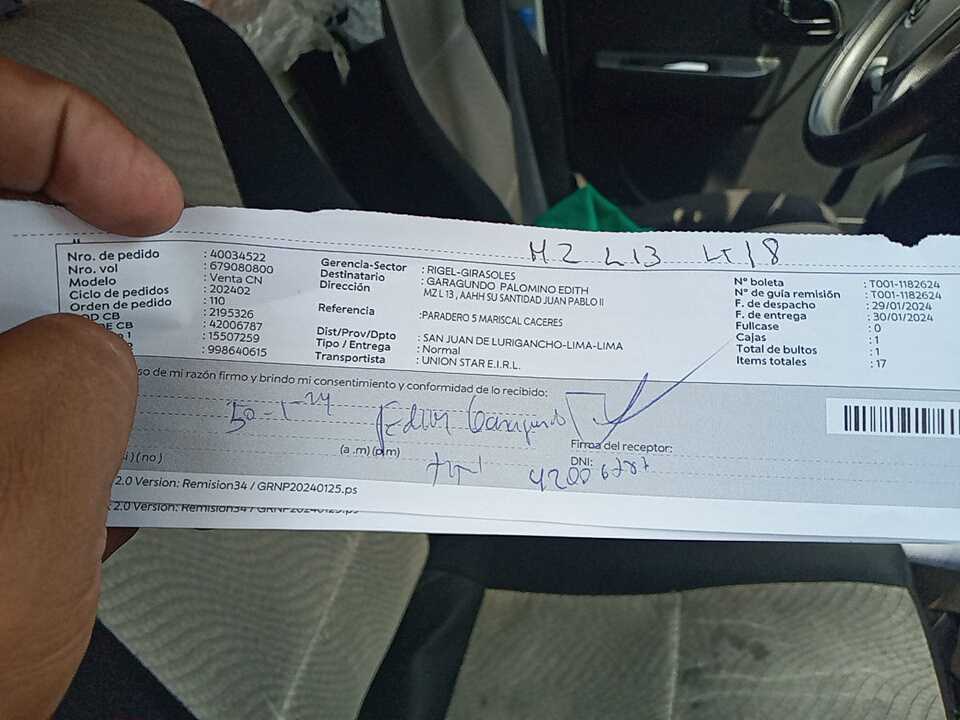 MZ L13 LT18
Nro. de pedido : 40034522
Nro. vol : 679080800
Modelo : Venta CN
Ciclo de pedidos : 202402
Orden de pedido : 110
CB : 2195326
CB : 42006787
: 15507259
: 998640615
Gerencia-Sector : RIGEL-GIRASOLES
Destinatario : GARAGUNDO PALOMINO EDITH
Dirección MZ L 13 , AAHH SU SANTIDAD JUAN PABLO II
Referencia :PARADERO 5 MARISCAL CACERES
Dist/Prov/Dpto : SAN JUAN DE LURIGANCHO-LIMA-LIMA
Tipo / Entrega : Normal
Transportista : UNION STAR E.I.R.L.
N° boleta : T001-1182624
N° de guía remisión : T001-1182624
F. de despacho : 29/01/2024
F. de entrega : 30/01/2024
Fullcase : 0
Cajas : 1
Total de bultos : 1
Items totales : 17
so de mi razón firmo y brindo mi consentimiento y conformidad de lo recibido:
Edith Garagundo
(a .m) (p.m)
Firma del receptor:
DNI: 42006787
) ( no )
2.0 Version: Remision34 / GRNP20240125.ps
2.0 Version: Remision34 / GRNP20240125.ps